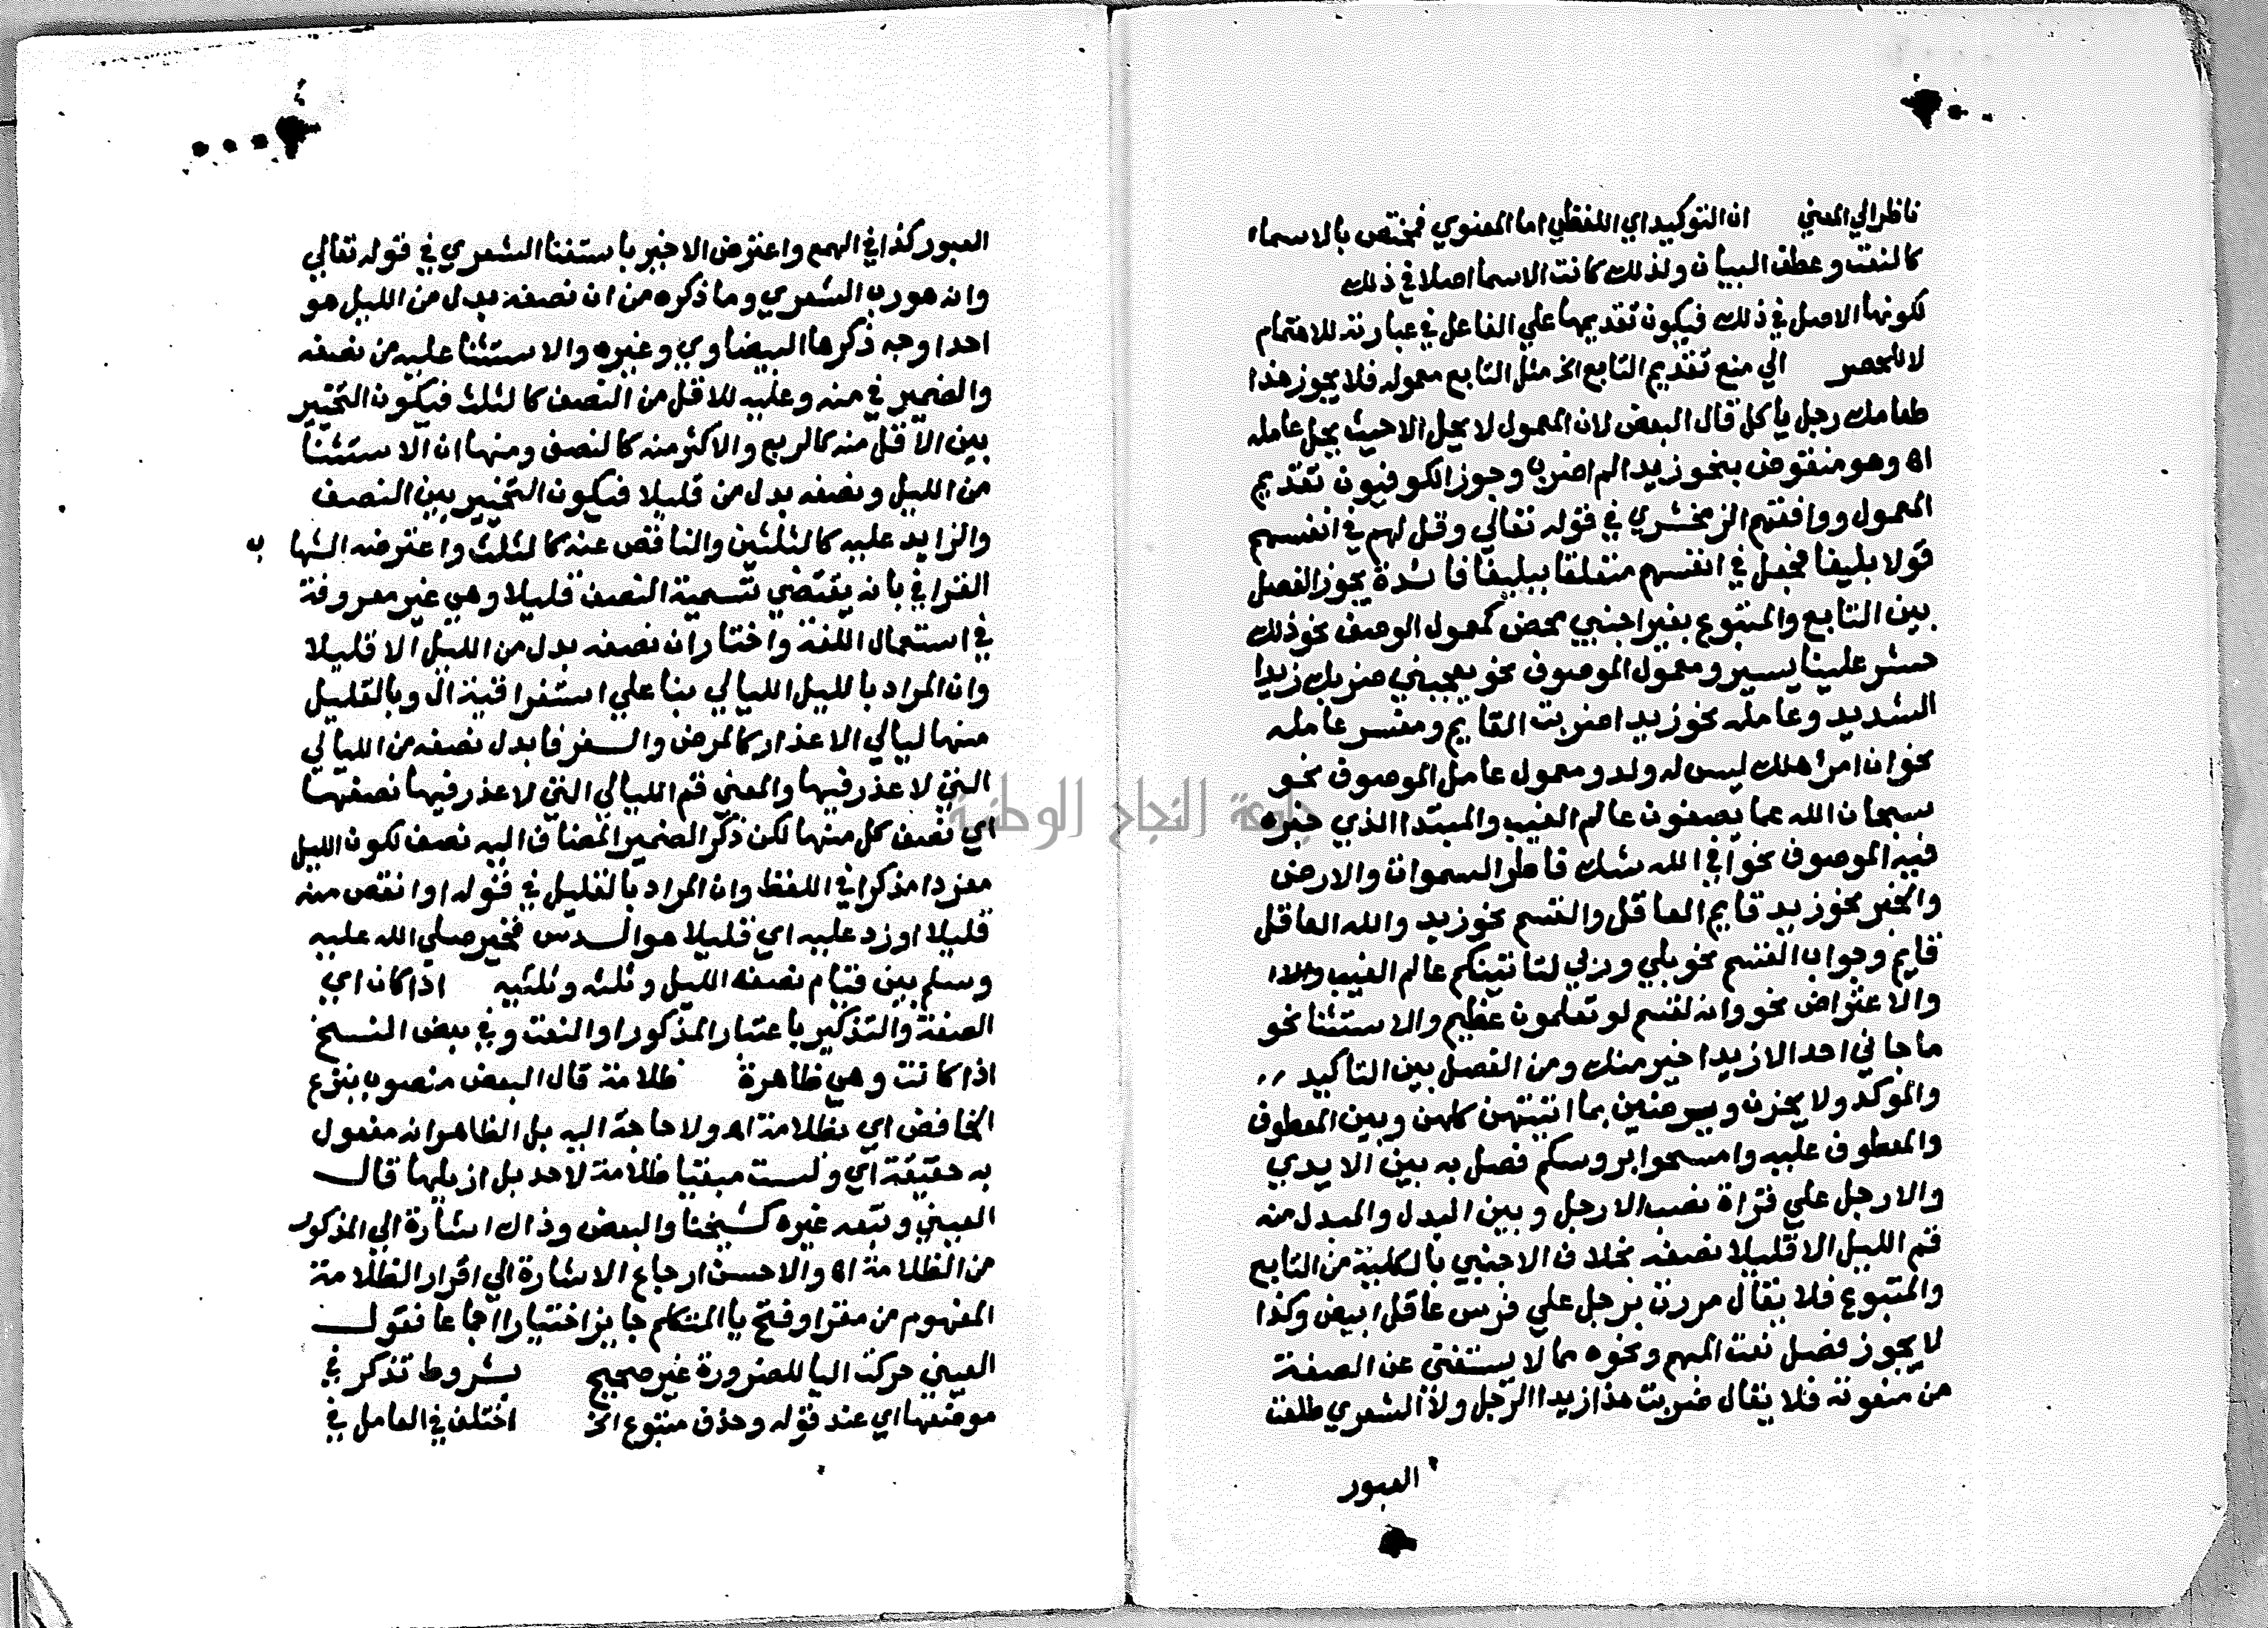 ناظرا الي المعني ان التوكيد اي اللفظي اما المعنوي فمختص بالاسماء
كالنعت وعطف البيان ولذلك كانت الاسما اصلا في ذلك
لكونها الاصل في ذلك فيكون تقديمها علي الفاعل في عبارته للاهتمام
لا للحصر الي منع تقديم التابع الخ مثل التابع معموله فلا يجوز هذا
طعامك رجل ياكل قال البعض لان المعمول لا يحل الا حيث يحل عامله
اه وهو منقوض بنحو زيدا لم اضرب وجوز الكوفيون تقديم
المعمول ووافقهم الزمخشري في قوله تعالي وقل لهم في انفسهم
قولا بليغا فجعل في انفسهم متعلقا ببليغا فائدة يجوز الفصل
بين التابع والمتبوع بغير اجنبي محض كمعمول الوصف نحو ذلك
حشر علينا يسير ومعمول الموصوف نحو يعجبني ضربك زيدا
الشديد وعامله نحو زيدا ضربت القايم ومفسر عامله
نحو ان امرؤ هلك ليس له ولد ومعمول عامل الموصوف نحو
سبحان الله عما يصفون عالم الغيب والمبتدا الذي خبره
فيه الموصوف نحو افي الله شك فاطر السموات والارض
والخبر نحو زيد قايم العاقل والقسم نحو زيد والله العاقل
قايم وجواب القسم نحو بلي وربي لتاتينكم عالم الغيب
والاعتراض نحو وانه لقسم لو تعلمون عظيم والاستثنا نحو
ما جاني احد الا زيدا خير منك ومن الفصل بين التاكيد
والموكد ولا يحزن ويرضين بما اتيتهن كلهن وبين المعطوف
والمعطوف عليه وامسحوا بروسكم فصل به بين الايدي
والارجل علي قراة نصب الارجل وبين البدل والمبدل منه
قم الليل الا قليلا نصفه بخلاف الاجنبي بالكلية من التابع
والمتبوع فلا يقال مررت برجل علي فرس عاقل ابيض وكذا
لا يجوز فصل نعت المبهم ونحوه مما لا يستغني عن الصفة
من منعوته فلا يقال ضربت هذا زيدا الرجل ولا الشعري طلعت
العبور
العبور كذا في الهمع واعترض الاخير باستغنا الشعري في قوله تعالي
وانه هو رب الشعري وما ذكره من ان نصفه بدل من الليل هو
احد اوجه ذكرها البيضاوي وغيره والاستثنا عليه من نصفه
والضمير في منه وعليه للاقل من النصف كالثلث فيكون التخيير
بين الاقل منه كالربع والاكثر منه كالنصف ومنها ان الاستثنا
من الليل ونصفه بدل من قليلا فيكون التخيير بين النصف
والزايد عليه كالثلثين والناقص عنه كالثلث واعترضه الشهاب
القرافي بانه يقتضي تسمية النصف قليلا وهي غير معروفة
في استعمال اللغة واختار ان نصفه بدل من الليل الا قليلا
وان المراد بالليل الليالي بنا علي استغراقية ال وبالقليل
منها ليالي الاعذار كالمرض والسفر فابدل نصفه من الليالي
التي لا عذر فيها والمعني قم الليالي التي لا عذر فيها نصفها
اي نصف كل منها لكن ذكر الضمير المضاف اليه نصف لكون الليل
مفردا مذكرا في اللفظ وان المراد بالقليل في قوله او انقص منه
قليلا او زد عليه اي قليلا هو السدس فخير صلي الله عليه
وسلم بين قيام نصف الليل وثلثه وثلثيه اذا كان اي
الصفة والتذكير باعتبار المذكور او النعت وفي بعض النسخ
اذا كانت وهي ظاهرة ظلامة قال البعض منصوب بنزع
الخافض اي بظلامة اه ولا حاجة اليه بل الظاهر انه مفعول
به حقيقة اي ولست مبقيا ظلامة لاحد بل ازيلها قال
العيني وتبعه غيره كشيخنا والبعض وذاك اشارة الي المذكور
من الظلامة اه والاحسن ارجاع الاشارة الي اقرار الظلامة
المفهوم من مقرا وفتح يا المتكلم جايز اختيارا اجماعا فقول
العيني حركت اليا للضرورة غير صحيح بشروط تذكر في
موضعها اي عند قوله وحذف متبوع الخ اختلف في العامل في
جامعة النجاح الوطنية